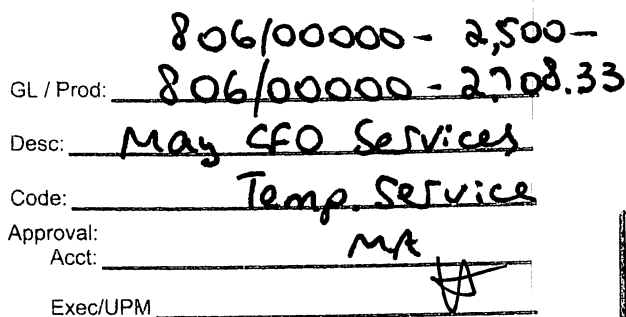 806/00000 - 2,500-
GL / Prod: 806/00000 - 2,708.33
Desc: May CFO Services
Code: Temp. Service
Approval:
Acct: MA
Exec/UPM